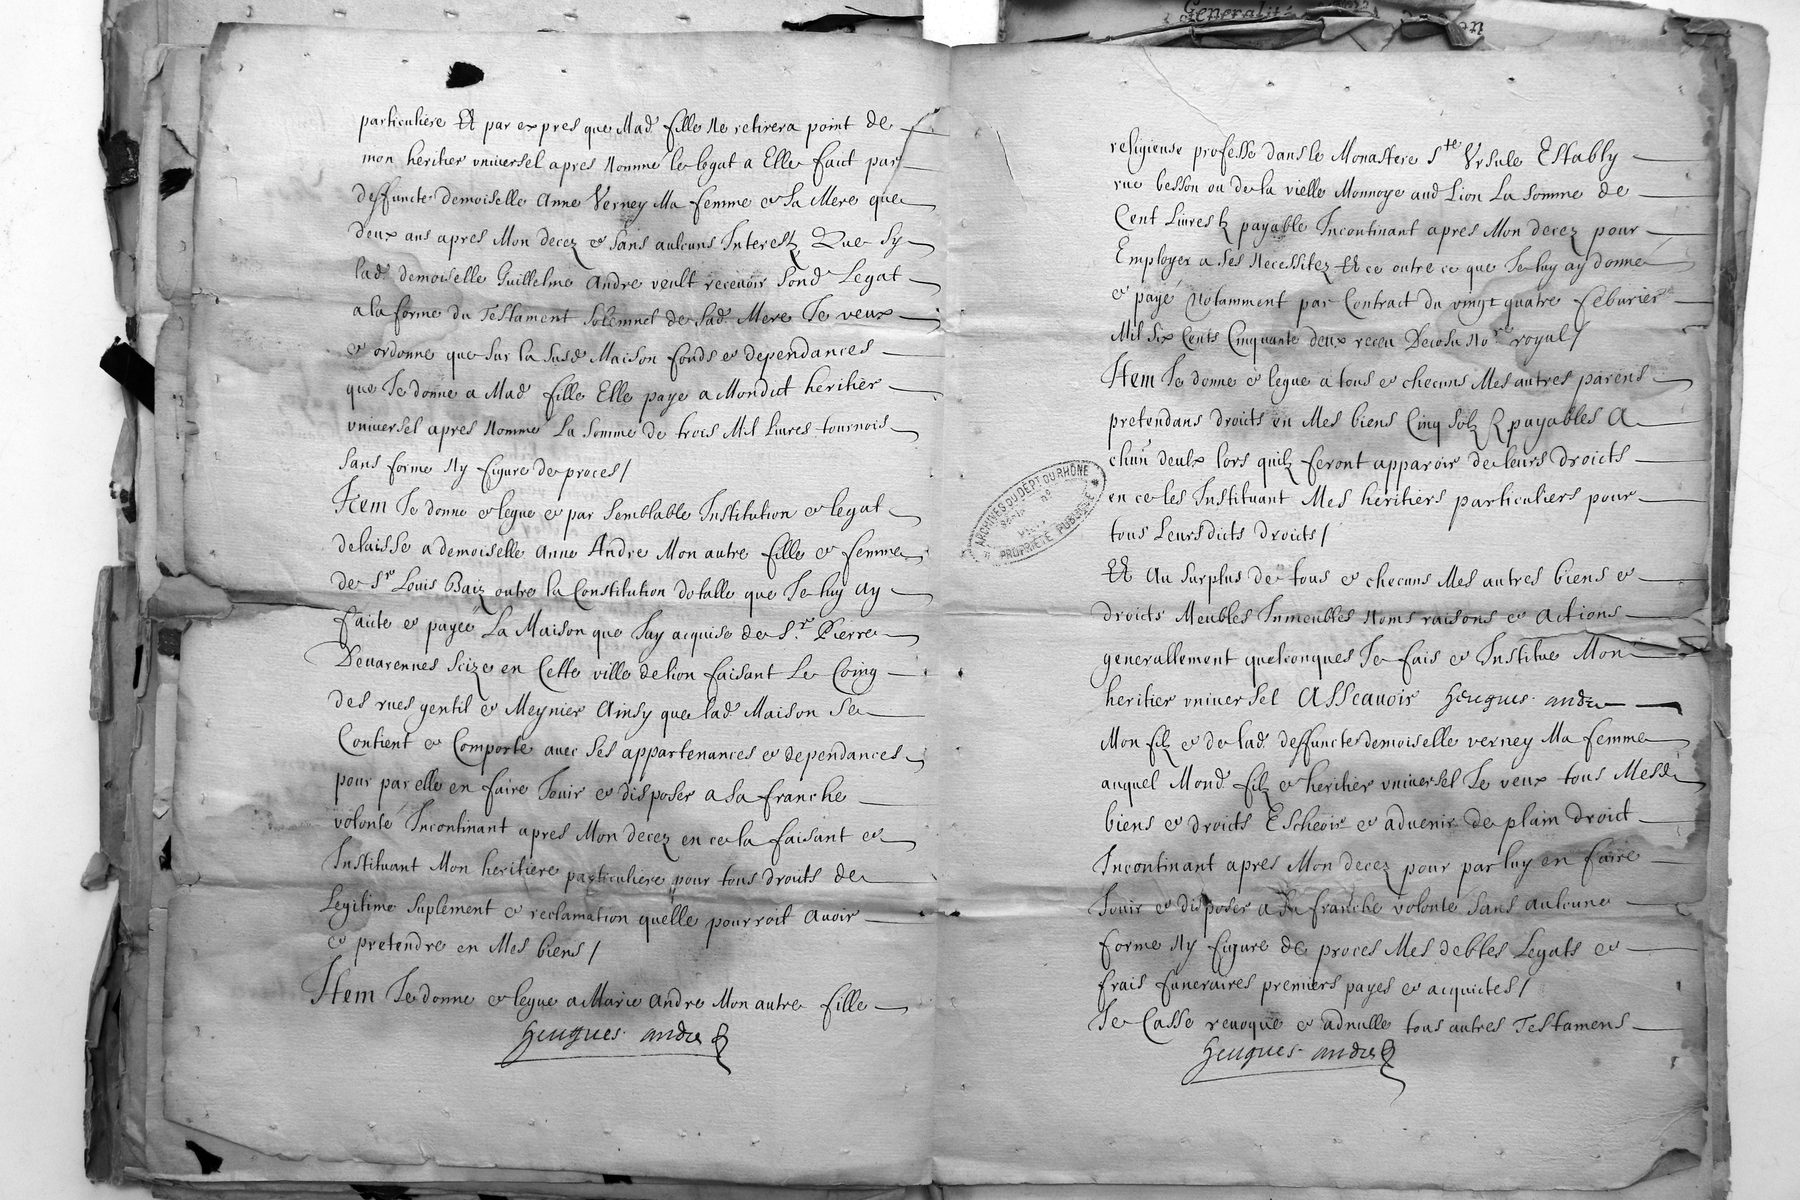 Generalité
particuliere Et par expres que Mad. fille ne retirera point de
mon heritier vniuersel apres nommé le legat a Elle faict par
deffuncte demoiselle Anne Verney Ma femme & sa Mere que
deux ans apres Mon decez & sans aulcuns Interestz Que sy
lad. demoiselle Guillelme Andre veult receuoir Sond. Legat
a la forme du Testament Solemnel de Sad. Mere Je veux
& ordonne que sur la susd. Maison fonds & dependances
que Je donne a Mad. fille Elle paye a Mondict heritier
vniuersel apres Nommé La Somme de trois Mil Liures tournois
sans forme Ny figure de proces /
Item Je donne & legue & par semblable Institution & legat
delaisse a demoiselle Anne Andre Mon autre fille & femme
de Sr. Louis Baiz outre la Constitution dotalle que Je luy ay
faicte & payée La Maison que Jay acquise de Sr. Pierre
Deuarennes Scize en Cette ville de lion faisant Le Coing
des rues gentil & Meynier Ainsy que lad. Maison Se
Contient & Comporte auec Ses appartenances & dependances
pour par elle en faire Jouir & disposer a Sa franche
volonté Incontinant apres Mon decez en ce la faisant &
Instituant Mon heritiere particuliere pour tous droits de
Legitime suplement & reclamation quelle pourroit Auoir
& pretendre en Mes biens /
Item Je donne & legue a Marie Andre Mon autre fille
heugues andre
religieuse professe dans le Monastere Ste Vrsule Estably
rue besson ou de la vielle Monnoye aud. Lion La Somme de
Cent Liures payable Incontinant apres Mon decez pour
Employer a Ses Necessitez Et ce outre ce que Je luy ay donné
& payé Notamment par Contract du vingt quatre feburier
Mil Six Cents Cinquante deux receu Decosu Nore royal /
Item Je donne & legue a tous & checuns Mes autres parens
pretendans droits en Mes biens Cinq Solz payables A
chun deulx lors quilz feront apparoir de leurs droicts
en ce les Instituant Mes heritiers particuliers pour
tous Leursdicts droicts /
Et Au Surplus de tous & checuns Mes autres biens &
droicts Meubles Inmeubles Noms raisons & Actions
generallement quelconques Je fais & Institue Mon
heritier vniuersel Asscauoir heugues andre
Mon filz & de lad. deffuncte demoiselle verney Ma femme
auquel Mond. filz & heritier vniuersel Je veux tous Mesd.
biens & droicts Escheoir & aduenir de plain droict
Incontinant apres Mon decez pour par luy en faire
Jouir & disposer a Sa franche volonté sans aulcune
forme Ny figure de proces Mes debtes Legats &
frais funeraires premiers payes & acquictes /
Je Casse reuoque & adnulle tous autres Testamens
heugues andre
ARCHIVES DU DEPT DU RHÔNE
PROPRIÉTÉ PUBLIQUE